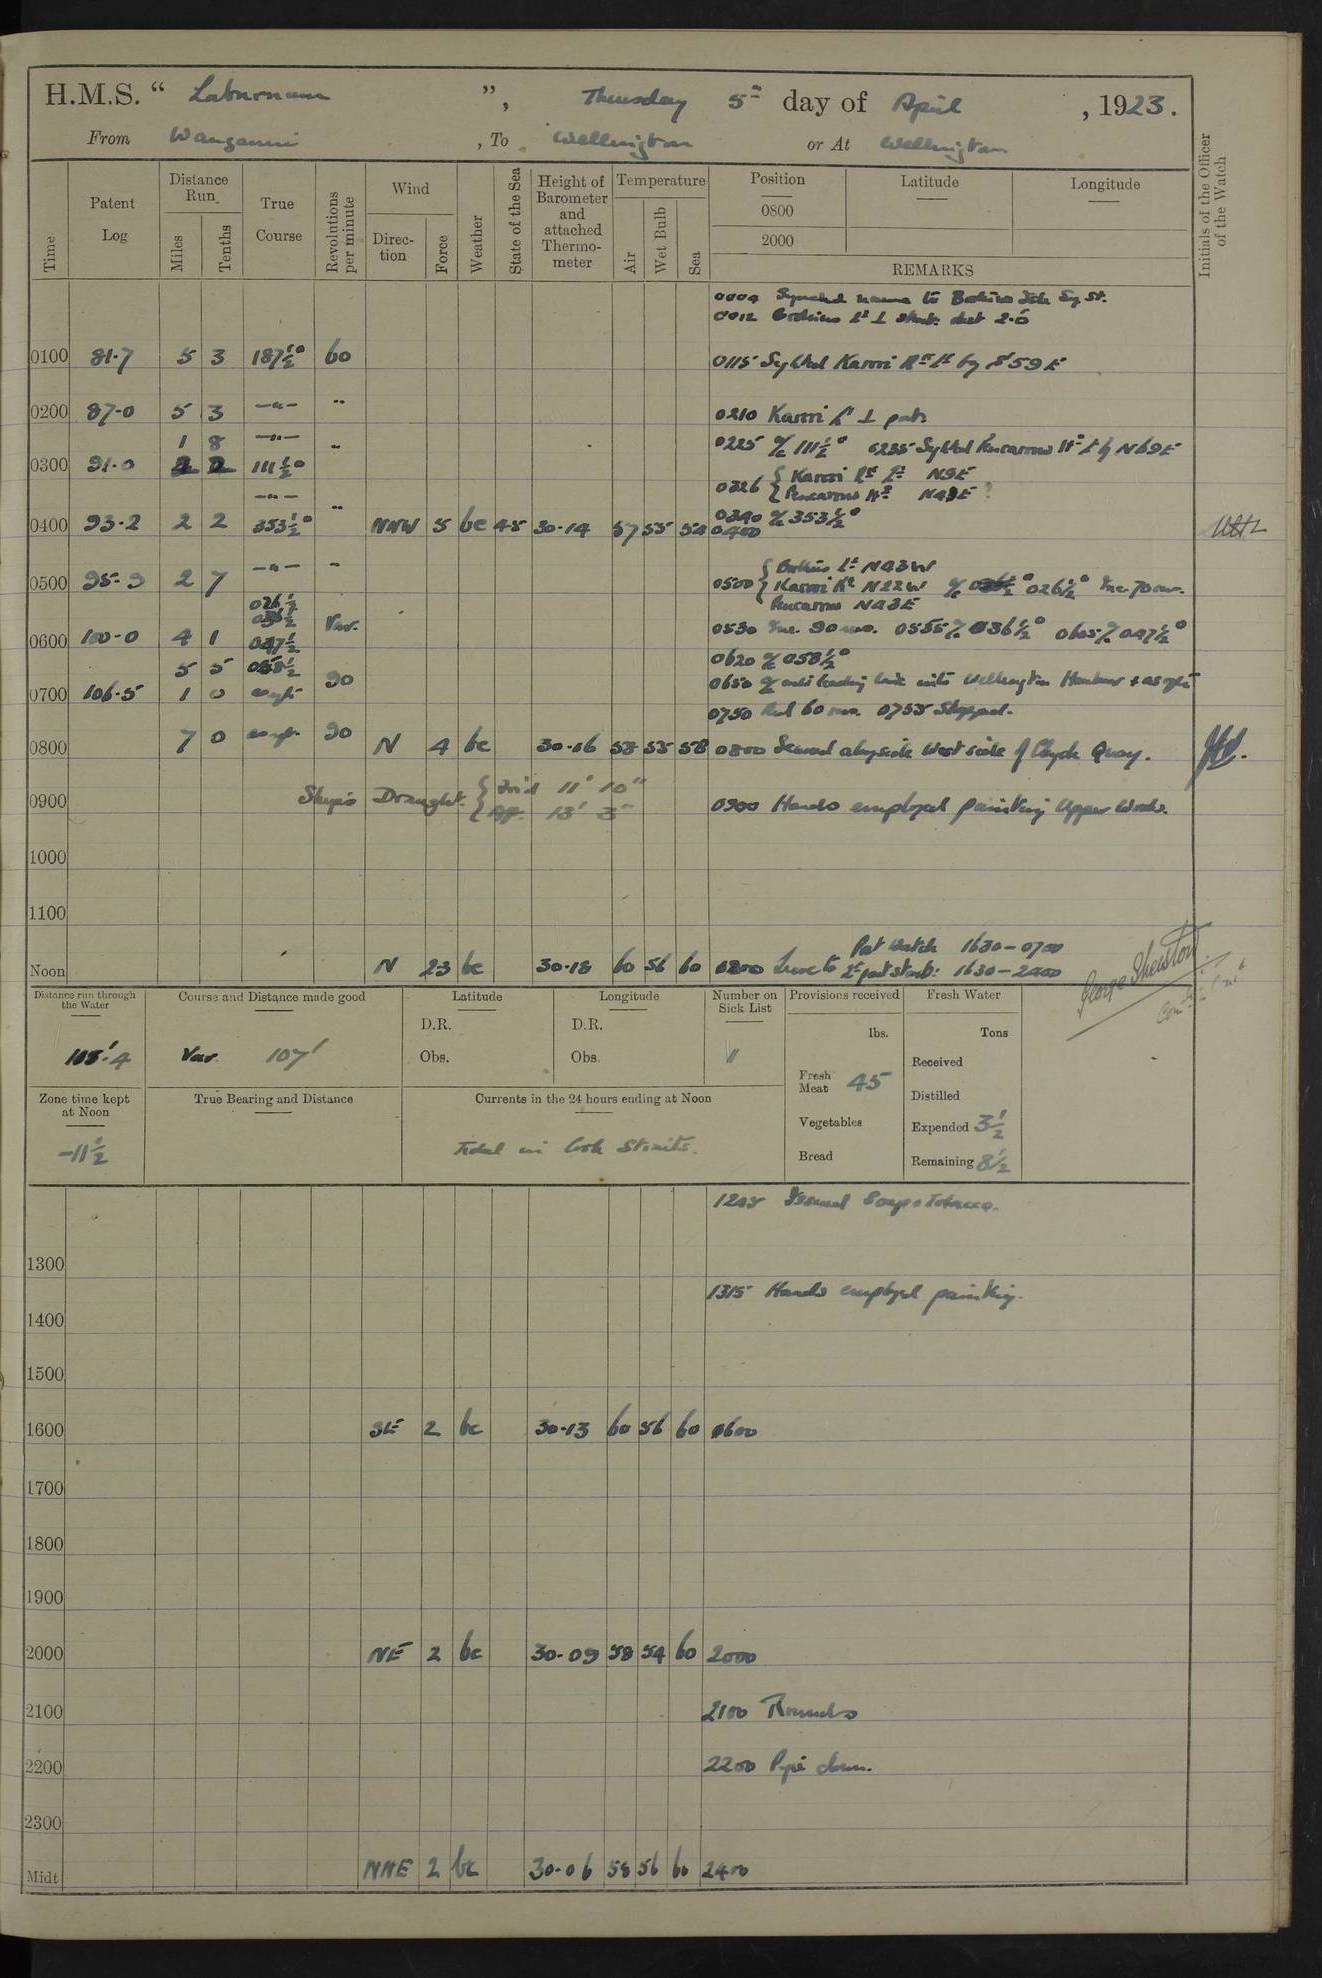 H.M.S. “ Laburnum ”, Thursday 5th day of April, 1923.
From Wanganui, To Wellington or At Wellington
Time Patent Log Distance Run Miles Tenths True Course Revolutions per minute Wind Direction Force Weather State of the Sea Height of Barometer and attached Thermometer Temperature Air Wet Bulb Sea Position Latitude Longitude Initials of the Officer of the Watch
0800
2000
REMARKS
0004 name to
0012 Brothers Lt ⊥ 2.0
0100 81.7 5 3 187½° 60 0115 Sighted Karori Rk Lt by S59E
0200 87.0 5 3 —"— " 0210 Karori Lt ⊥ port
1 8 —"— " 0225 a/c 111½° 0235 Sighted Pencarrow Hd Lt by N69E
0300 91.0 111½°
—"— " 0326 { Karori Rk Lt N9E
Pencarrow Hd
0340 a/c 353½°
0400 93.2 2 2 353½° NNW 5 bc 45 30.14 57 55 58 0400
{ Brothers Lt N43W
0500 95.9 2 7 —"— " 0500 Karori Rk N22W a/c 026½° Inc. 70 revs.
Pencarrow N43E
026½
036½
0600 100.0 4 1 047½ Var. 0530 Inc. 90 revs. 0555 a/c 036½° 0605 a/c 047½°
5 5 058½ 0620 a/c 058½°
0700 106.5 1 0 90 0650 a/c onto leading line into Wellington Harbour & as req
0750 Red 60 revs. 0755 Stopped.
0800 7 0 90 N 4 bc 30.16 58 55 58 0800 Secured alongside West side of Clyde Quay.
Ship's Draught { For'd 11' 10"
0900 Aft. 13' 3" 0900 Hands employed painting Upper Works.
1000
1100
Pat Watch 1630 – 0700
Noon N 23 bc 30.18 60 56 60 1200 Leave to 1st part starb: 1630 – 2400
George Shelston
Distance run through the Water Course and Distance made good Latitude Longitude Number on Sick List Provisions received Fresh Water
108'.4 Var 107' D.R. D.R. 11 lbs. Tons
Obs. Obs. Fresh Meat 45 Received
Distilled
Zone time kept at Noon True Bearing and Distance Currents in the 24 hours ending at Noon Vegetables Expended 3½
-11½ Tidal in Cook Straits. Bread Remaining 8½
1245 Issued Soap & Tobacco.
1300
1315 Hands employed painting.
1400
1500
1600 SE 2 bc 30.13 60 56 60 1600
1700
1800
1900
2000 NE 2 bc 30.09 58 54 60 2000
2100 2100 Rounds
2200 2200 Pipe down.
2300
Midt NNE 2 bc 30.06 58 56 60 2400